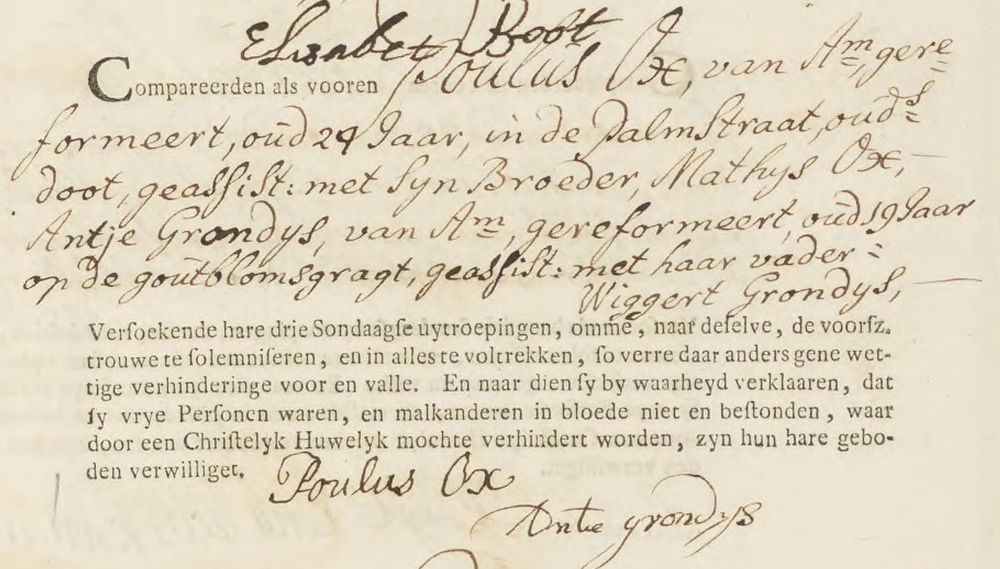 Elisabet Boot
Compareerden als vooren Poulus Ox, van Am, gere=
formeert, oud 24 Jaar, in de Palmstraat, ouds=
doot, geassist: met Syn Broeder, Mathys Ox,
Antje Grondys, van Am, gereformeert, oud 19 Jaar
op de goutblomsgragt, geassist: met haar vader:
Wiggert Grondys,
Verſoekende hare drie Sondaagſe uytroepingen, omme, naar deſelve, de voorſz.
trouwe te ſolemniſeren, en in alles te voltrekken, ſo verre daar anders gene wet-
tige verhinderinge voor en valle. En naar dien ſy by waarheyd verklaaren, dat
ſy vrye Perſonen waren, en malkanderen in bloede niet en beſtonden, waar
door een Chriſtelyk Huwelyk mochte verhindert worden, zyn hun hare gebo-
den verwilliget.
Poulus Ox
Antie grondys